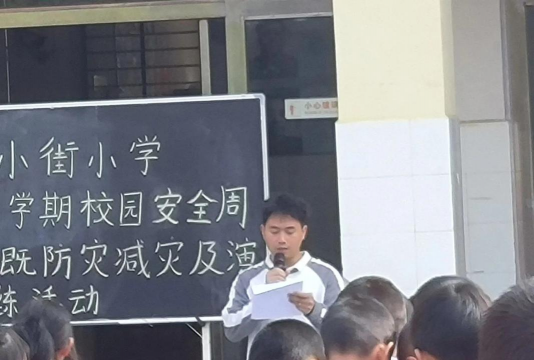 小街小学
学期校园安全周
既防灾减灾及演
练活动
小心碰